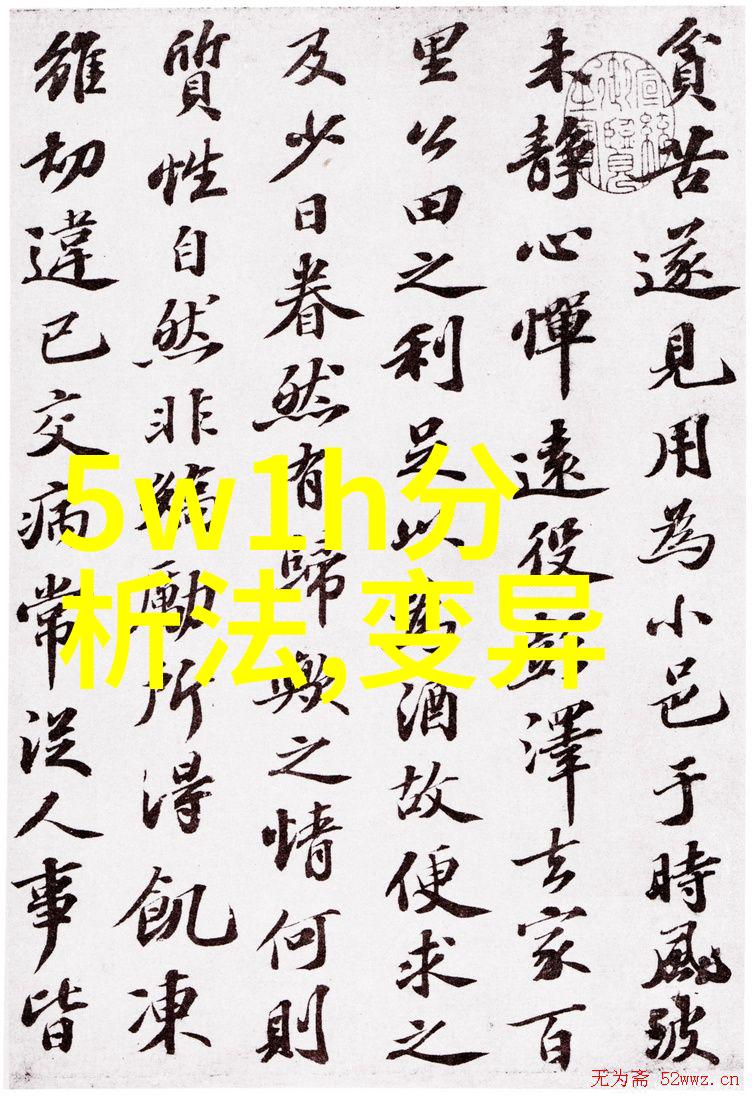 貧苦遂見用為小邑于時風波
未靜心憚遠役彭澤去家百
里公田之利足以為酒故便求之
及少日眷然有歸歟之情何則
質性自然非矯勵所得飢凍
雖切違已交病常從人事皆
5w1h分
析法,变异
无为斋 52wwz.cn